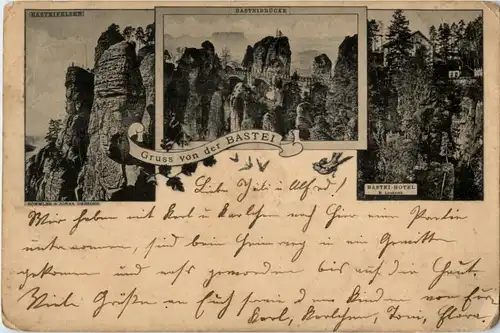 BASTEIFELSEN
BASTEIBRÜCKE
Gruss von der BASTEI
BASTEI-HOTEL
RÖMMLER & JONAS, DRESDEN.
Liebe u Alfred!
Wir haben mit Karl u Karlchen noch hier eine Partie
unternommen, sind beim Heimweg in ein Gewitter
gekommen und naß geworden bis auf die Haut.
Viele Grüße an Euch sowie die Kinder von Eure
Karl, Karlchen, Toni, Flora.